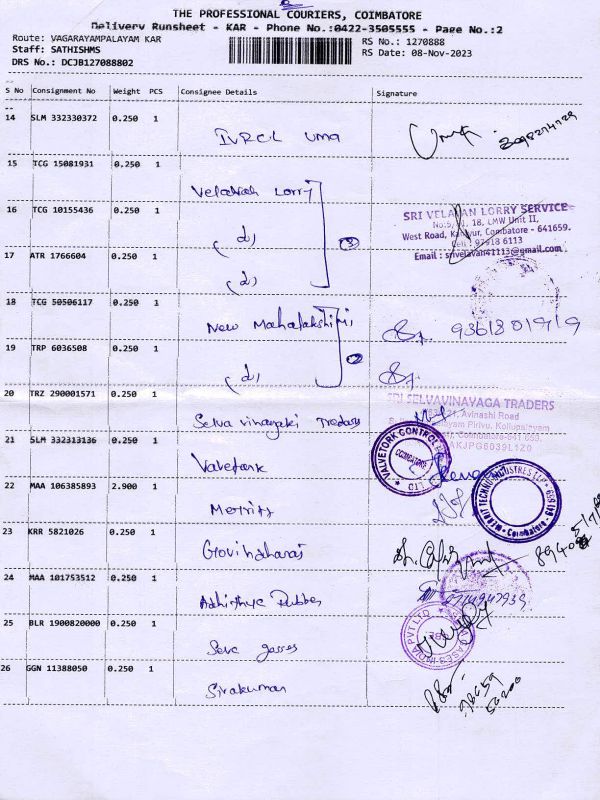 THE PROFESSIONAL COURIERS, COIMBATORE
Delivery Runsheet - KAR - Phone No.:0422-3505555 - Page No.:2
Route: VAGARAYAMPALAYAM KAR
Staff: SATHISHMS
DRS No.: DCJB127088802
RS No.: 1270888
RS Date: 08-Nov-2023
S No Consignment No Weight PCS Consignee Details Signature
14 SLM 332330372 0.250 1
IVRCL UMA
15 TCG 15081931 0.250 1
Velavah Lorry
16 TCG 10155436 0.250 1
(d)
17 ATR 1766604 0.250 1
(d)
3
SRI VELAVAN LORRY SERVICE
West Road, Kaniyur, Coimbatore - 641659.
Cell : 97918 6113
Email : srivelavan41113@gmail.com
18 TCG 50506117 0.250 1
New Mahalakshimi
9361801919
19 TRP 6036508 0.250 1
(d)
2
20 TRZ 290001571 0.250 1
Selva vinayaki Traders
SRI SELVAVINAYAGA TRADERS
Avinashi Road
21 SLM 332313136 0.250 1
Valvetork
VALVETORK CONTROL
COIMBATORE
22 MAA 106385893 2.900 1
Merritt
23 KRR 5821026 0.250 1
Govindharaj
24 MAA 101753512 0.250 1
Adhithya Rubber
25 BLR 1900820000 0.250 1
Seve gasses
26 GGN 11388050 0.250 1
Sivakumar